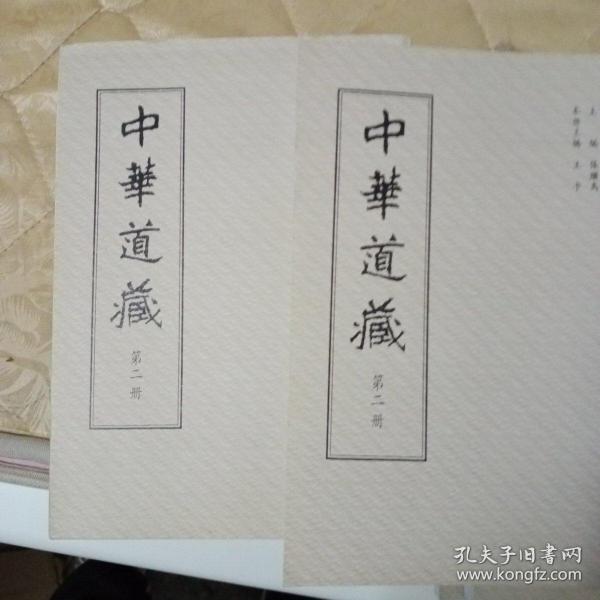 中華道藏
第二册
中華道藏
第二册
主編 張繼禹
本册主編 王卡
孔夫子旧書网
www.kongfz.com